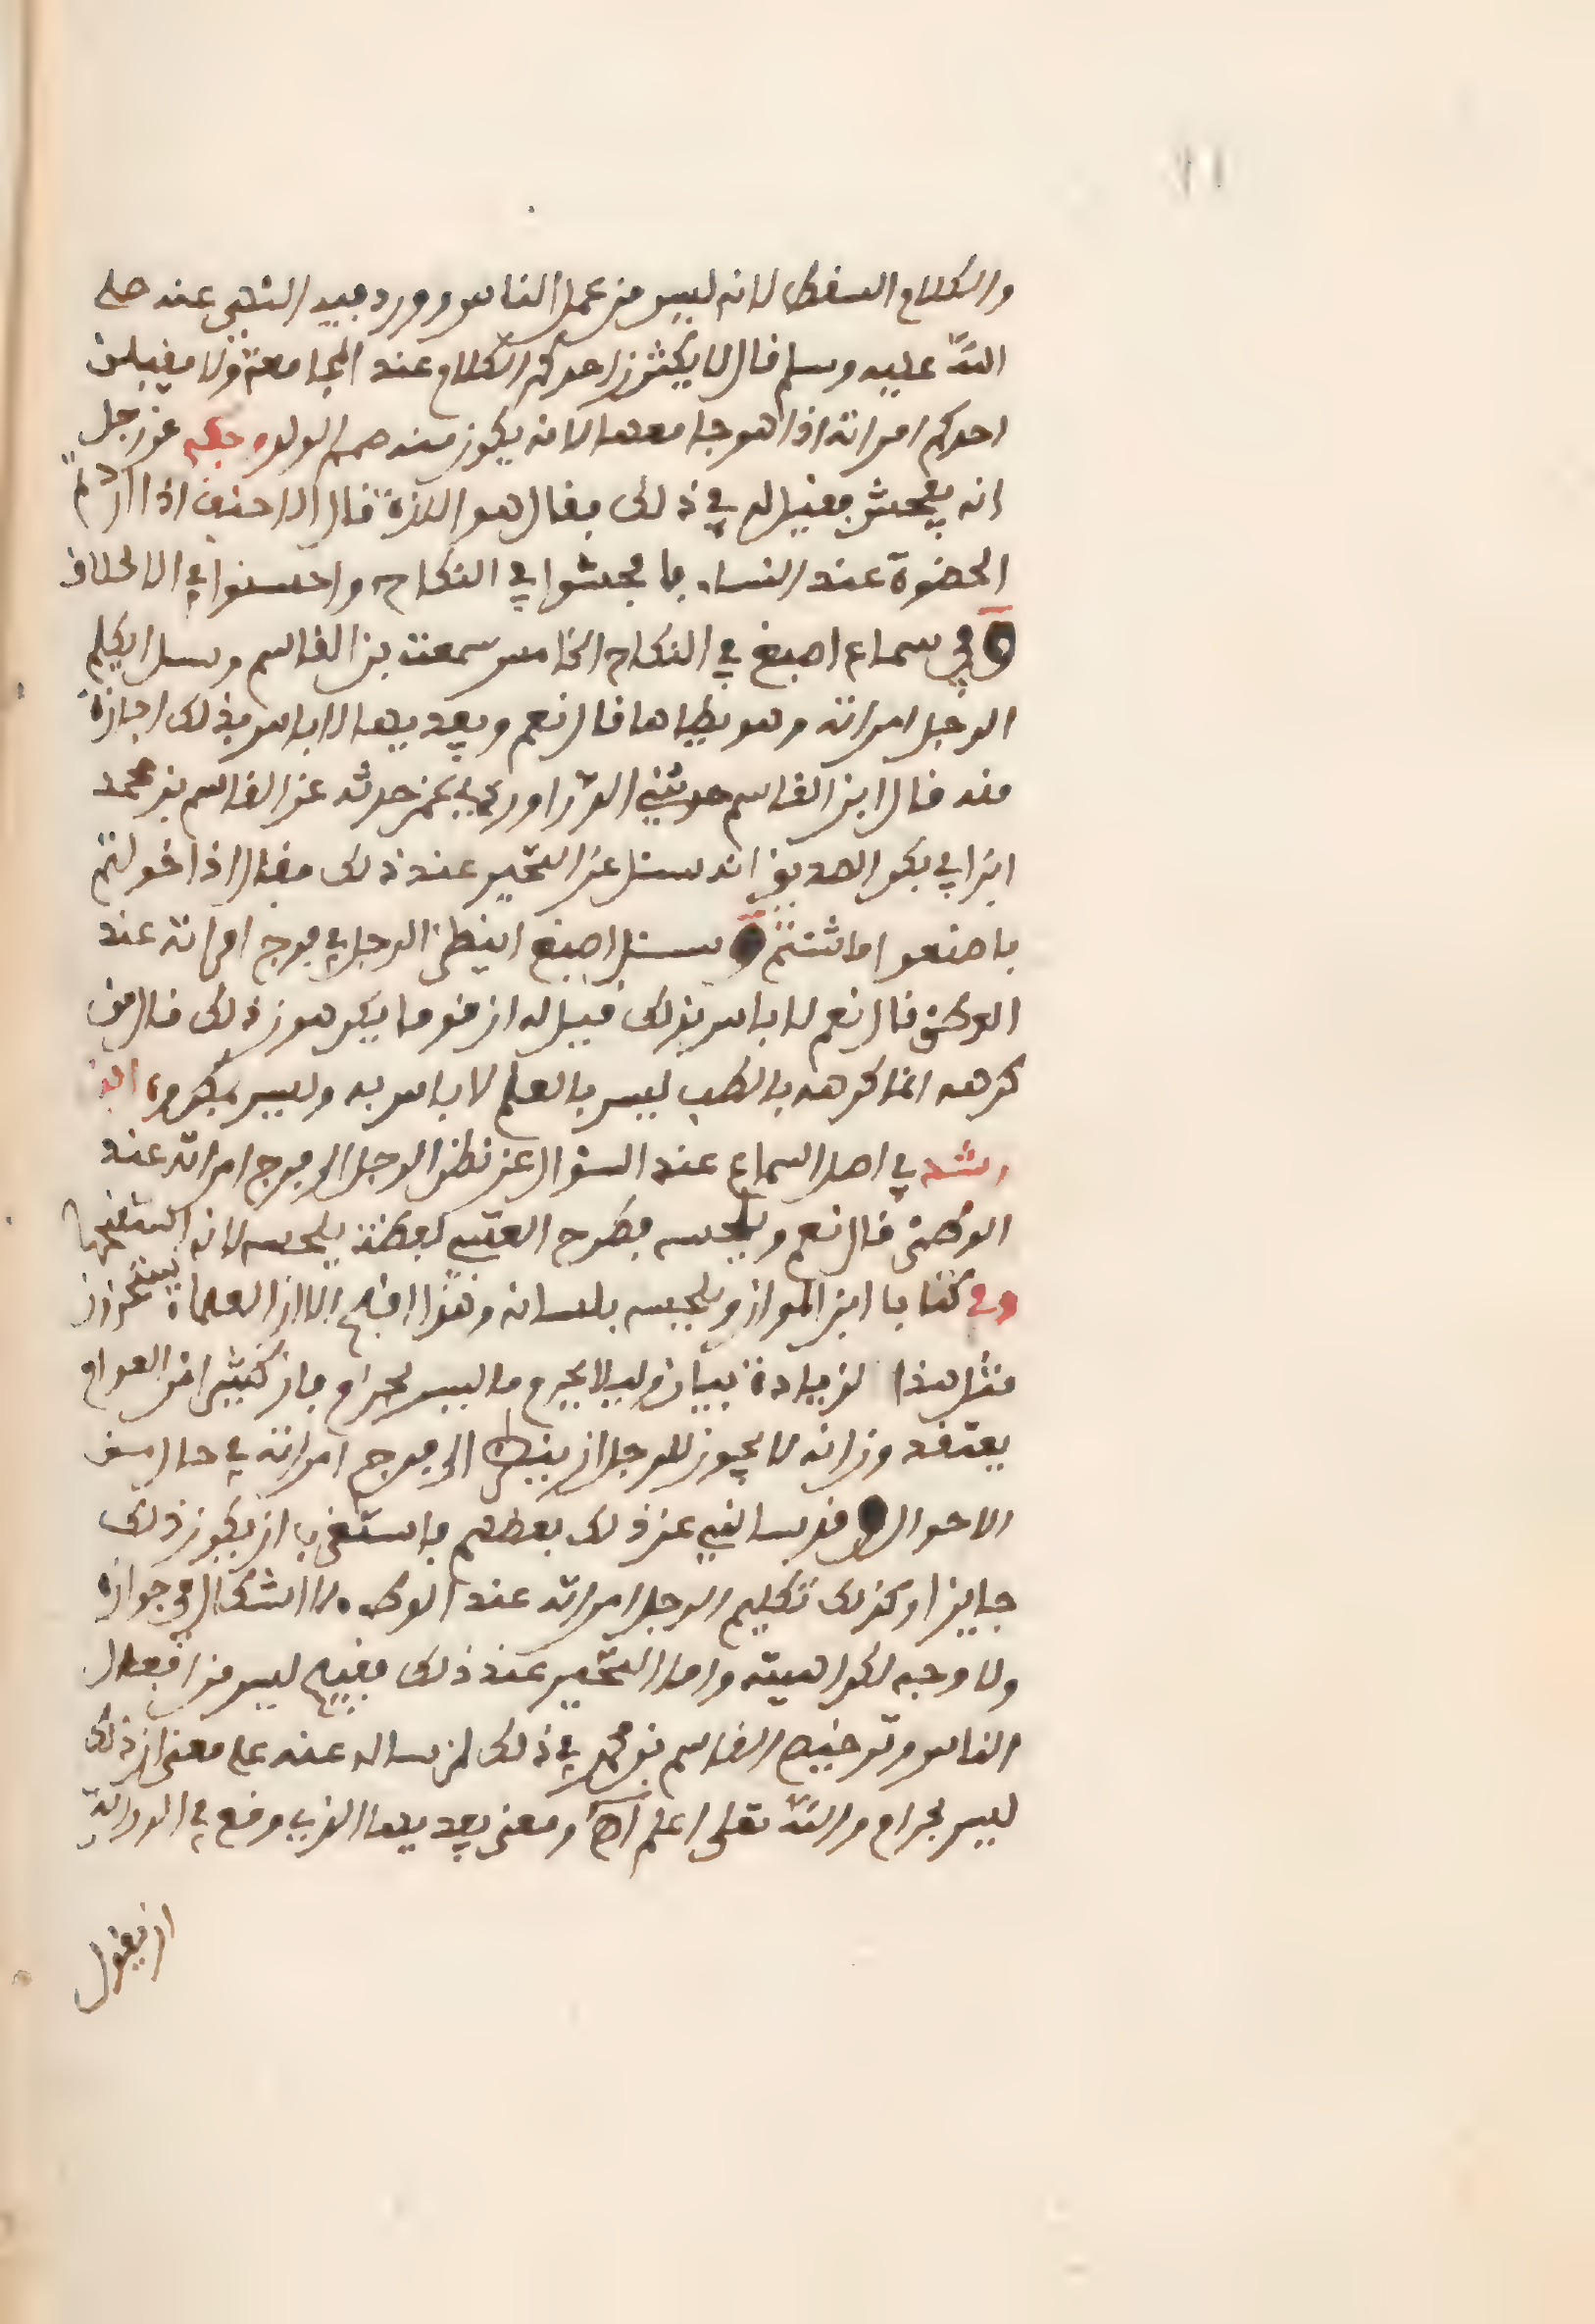 والكلام السفط لانه ليس من عمل الناس وورد فيه النهي عنه صلى
الله عليه وسلم قال لا يكثرن احدكم الكلام عند المجامعة ولا يقبلن
احدكم امراته اذا هو جامعها لانه يكون منه صمم الولد وحكي عن رجل
انه يفحش فقيل له في ذلك فقال هو الذة قال الاحنف اذا اردتم
الحضوة عند النساء فافحشوا في النكاح واحسنوا في الاخلاق
وفي سماع اصبغ في النكاح الخامس سمعت بن القاسم وسل ايكلم
الرجل امراته وهو يطاها قال نعم ويفديها لا باس بذلك اجازة
منه قال ابن القاسم حدثني الدراوردي عمن حدثه عن القاسم بن محمد
ابن ابي بكر الصديق انه سئل عن النخير عند ذلك فقال اذا خولتم
فاصنعوا ما شئتم وسئل اصبغ اينظر الرجل في فرج امراته عند
الوطئ قال نعم لا باس بذلك قيل له ان قوما يكرهون ذلك قال من
كرهه انما كرهه بالطب ليس بالعلم لا باس به وليس بمكروه ابن
رشد في اصل السماع عند السؤال عن نظر الرجل الى فرج امراته عند
الوطئ قال نعم ويلحسه فطرح العتبي لفظة يلحسه لانه استقبحها
وفي كتاب ابن المواز ويلحسه بلسانه وهذا اقبح الا ان العلماء يستجيزون
مثل هذا لزيادة بيان وليلا يحرم ما ليس بحرام فان كثيرا من العوام
يعتقدون انه لا يجوز للرجل ان ينظر الى فرج امراته في حال من
الاحوال وقد سالني عن ذلك بعضهم فاستغرب ان يكون ذلك
جايزا وكذلك تكليم الرجل امراته عند الوطء لا اشكال في جوازه
ولا وجه لكراهيته واما النخير عند ذلك فقبيح ليس من افعال
الناس وترخيص القاسم بن محمد في ذلك لمن ساله عنه على معنى ان ذلك
ليس بحرام والله تعلى اعلم اهـ ومعنى يفديها الذي وقع في الرواية
ان يقول